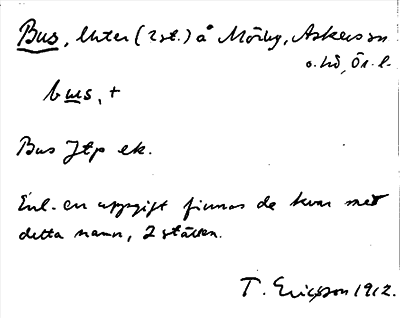 Bus, luter (2 st.) å Mörby, Askers sn
o. hd, Ör. l.
bus, +
Bus Jtp ek.
Enl. en uppgift finnas de kvar med
detta namn, 2 stycken.
T. Ericsson 1912.